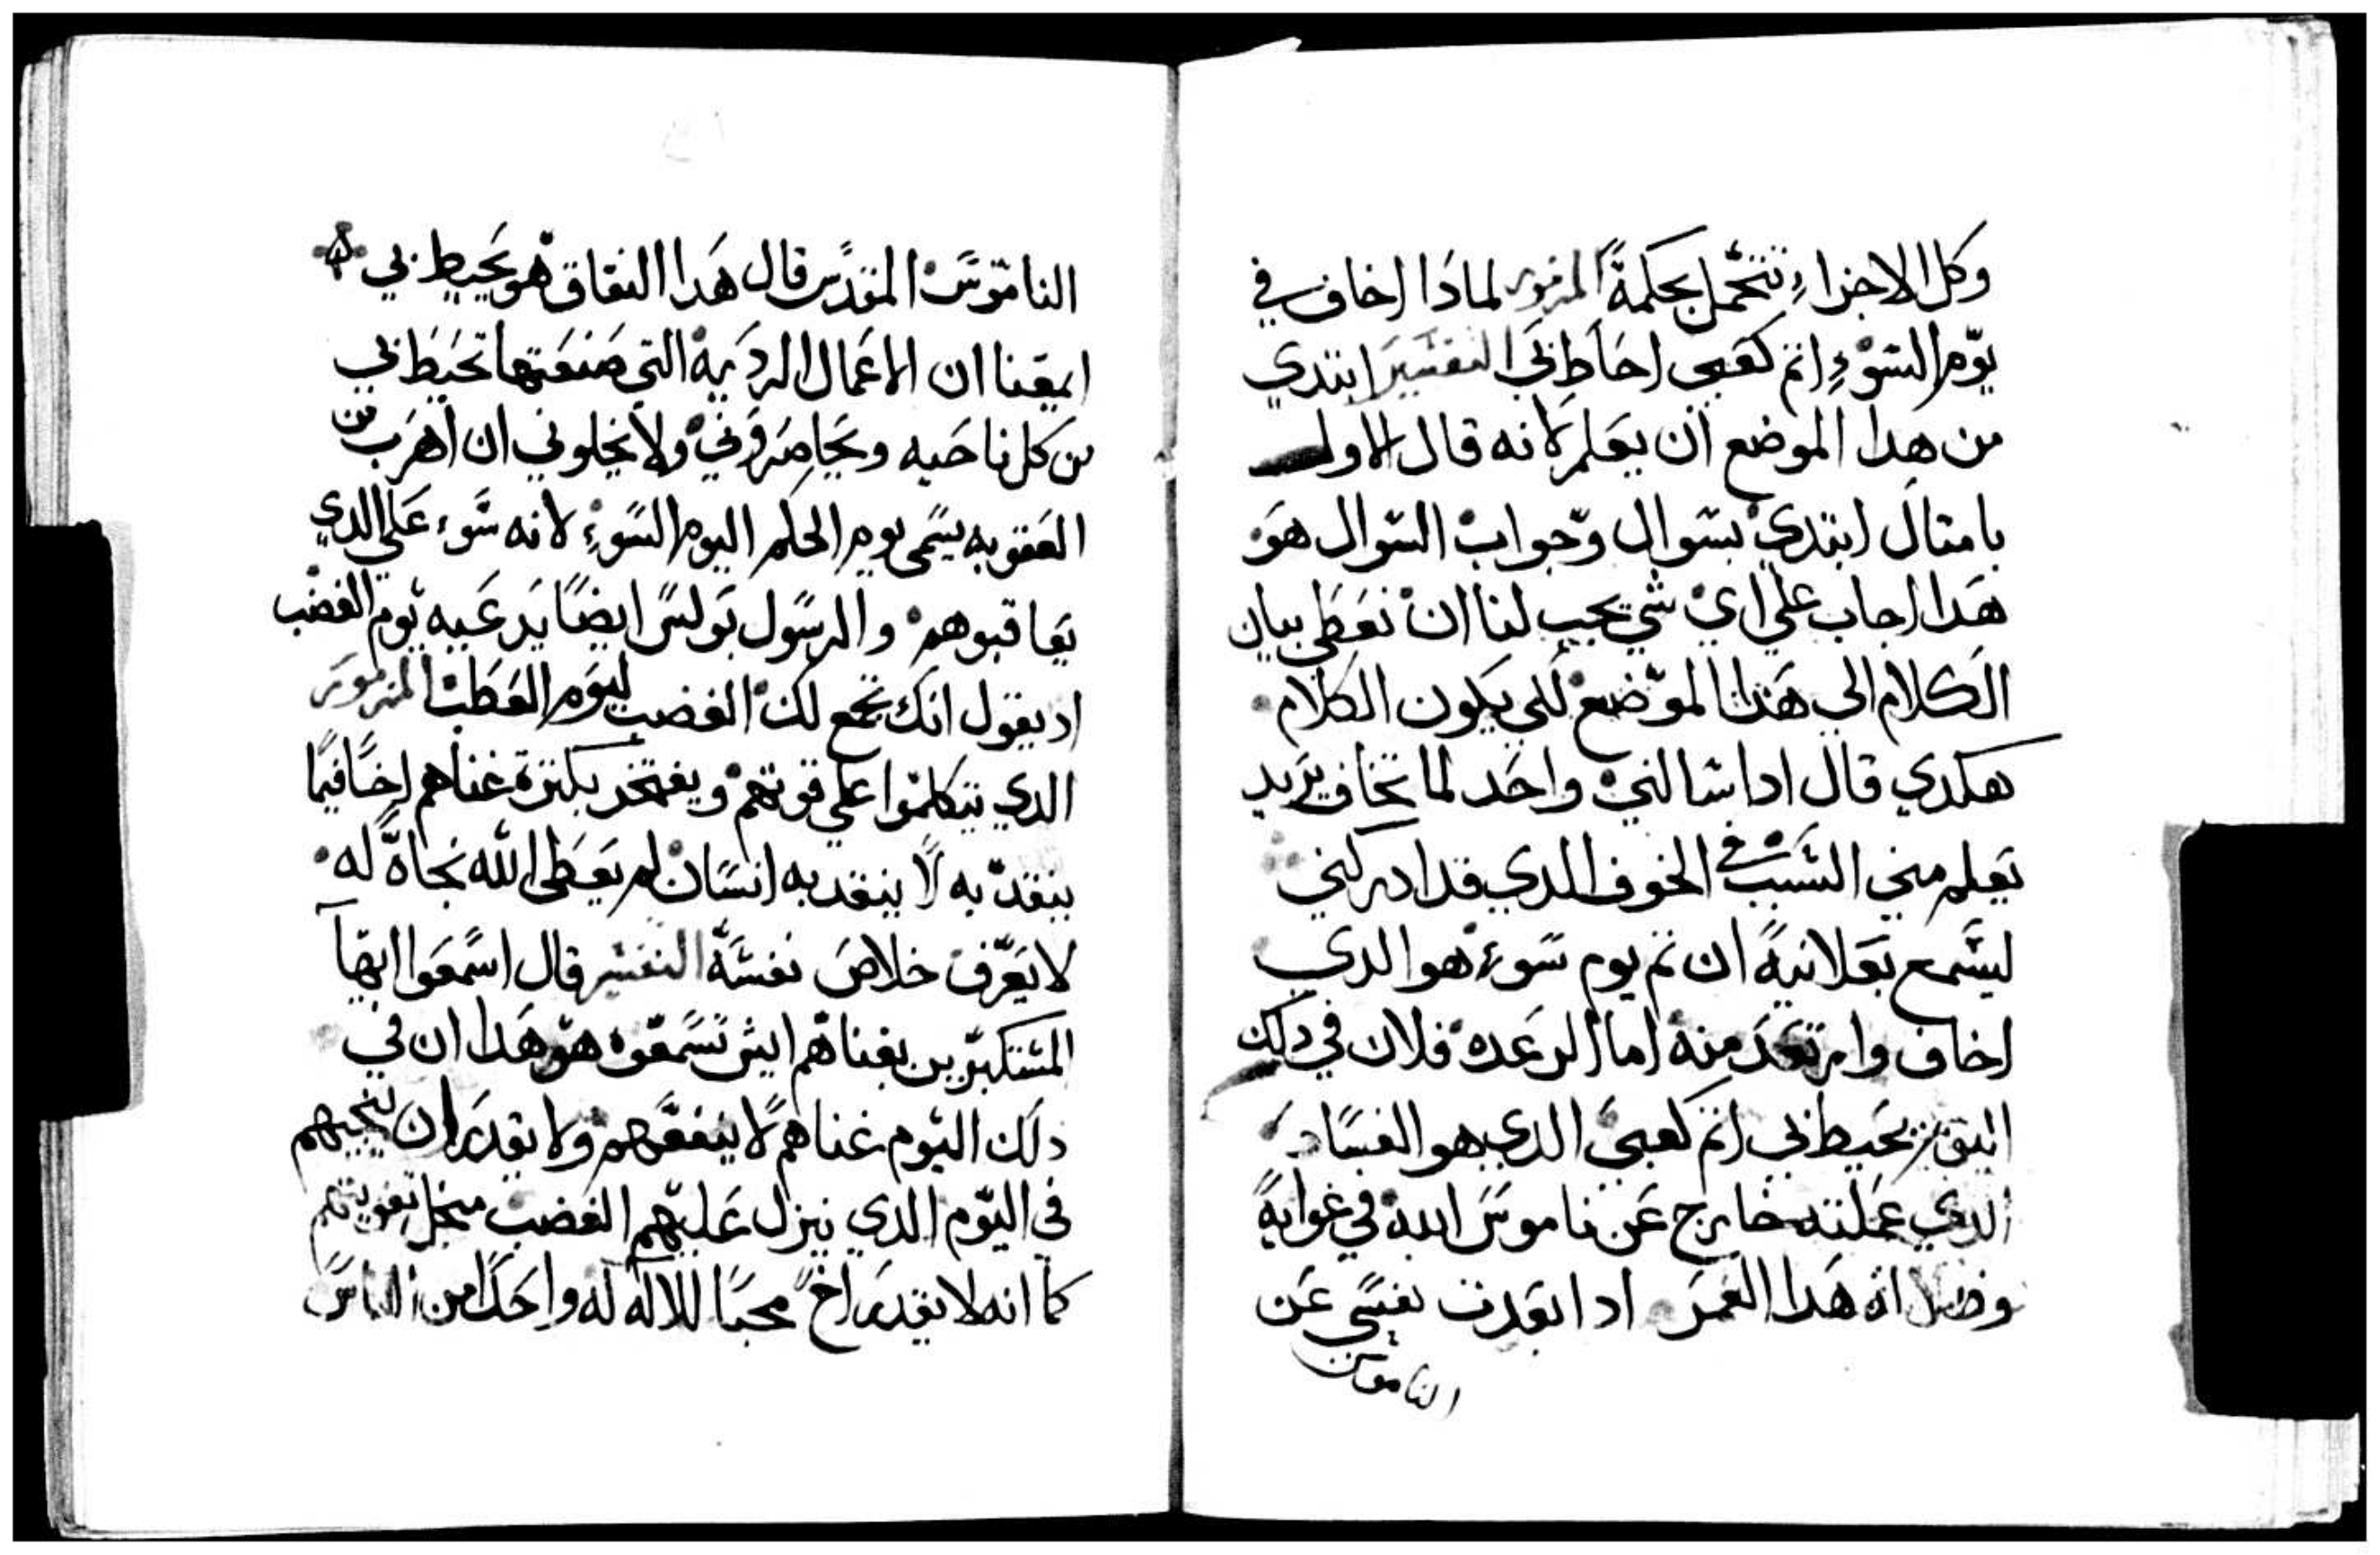 وكل الاجزاء تتحمل بحكمة المزمور لمادا اخاف في
يوم السوء اتم كعبي احاط بي التفسير ابتدي
من هدا الموضع ان يعلم لانه قال الاول
بامتال ابتدي بسوال وجواب السوال هو
هدا اجاب علي اي شي يجب لنا ان نعطي بيان
الكلام الي هدا الموضع للي يكون الكلام
هكدي قال ادا سالني واحد لما تخاف يريد
يعلم مني السبب في الخوف الدي قد ادركني
ليسمع بعلانية ان تم يوم سوء هو الدي
اخاف وارتعد منه اما الرعده فلان في دلك
اليوم يحيط بي اتم كعبي الدي هو الفساد
الدي عملته خارج عن ناموس الله في غواية
وضلالة هدا العمر ادا بعدت نفسي عن
الناموس
الناموس المقدس قال هدا النفاق هو يحيط بي
ايقنا ان الاعمال الردية التي صنعتها تحيط بي
من كل ناحيه ويحاصروني ولا يخلوني ان اهرب من
العقوبه يسمى يوم الحكم اليوم السوء لانه سوء على الدي
يعاقبوهم والرسول بولس ايضا يدعيه يوم الغضب
اد يقول انك تجمع لك الغضب ليوم العطب المزمور
الدي يتكلموا علي قوتهم ويفتخر بكترة غناهم اخا فيما
ينقد به لا ينقد به انسان لم يعطي الله نجاة له
لا يعرف خلاص نفسه التفسير قال اسمعوا ايها
المستكبرين بغناهم ايش تسمعوه هو هدا ان في
دلك اليوم غناهم لا ينفعهم ولا يقدر ان ينجيهم
في اليوم الدي ينزل عليهم الغضب
كما انه لا يقدر اخ محبا للاله له واحدا من الناس